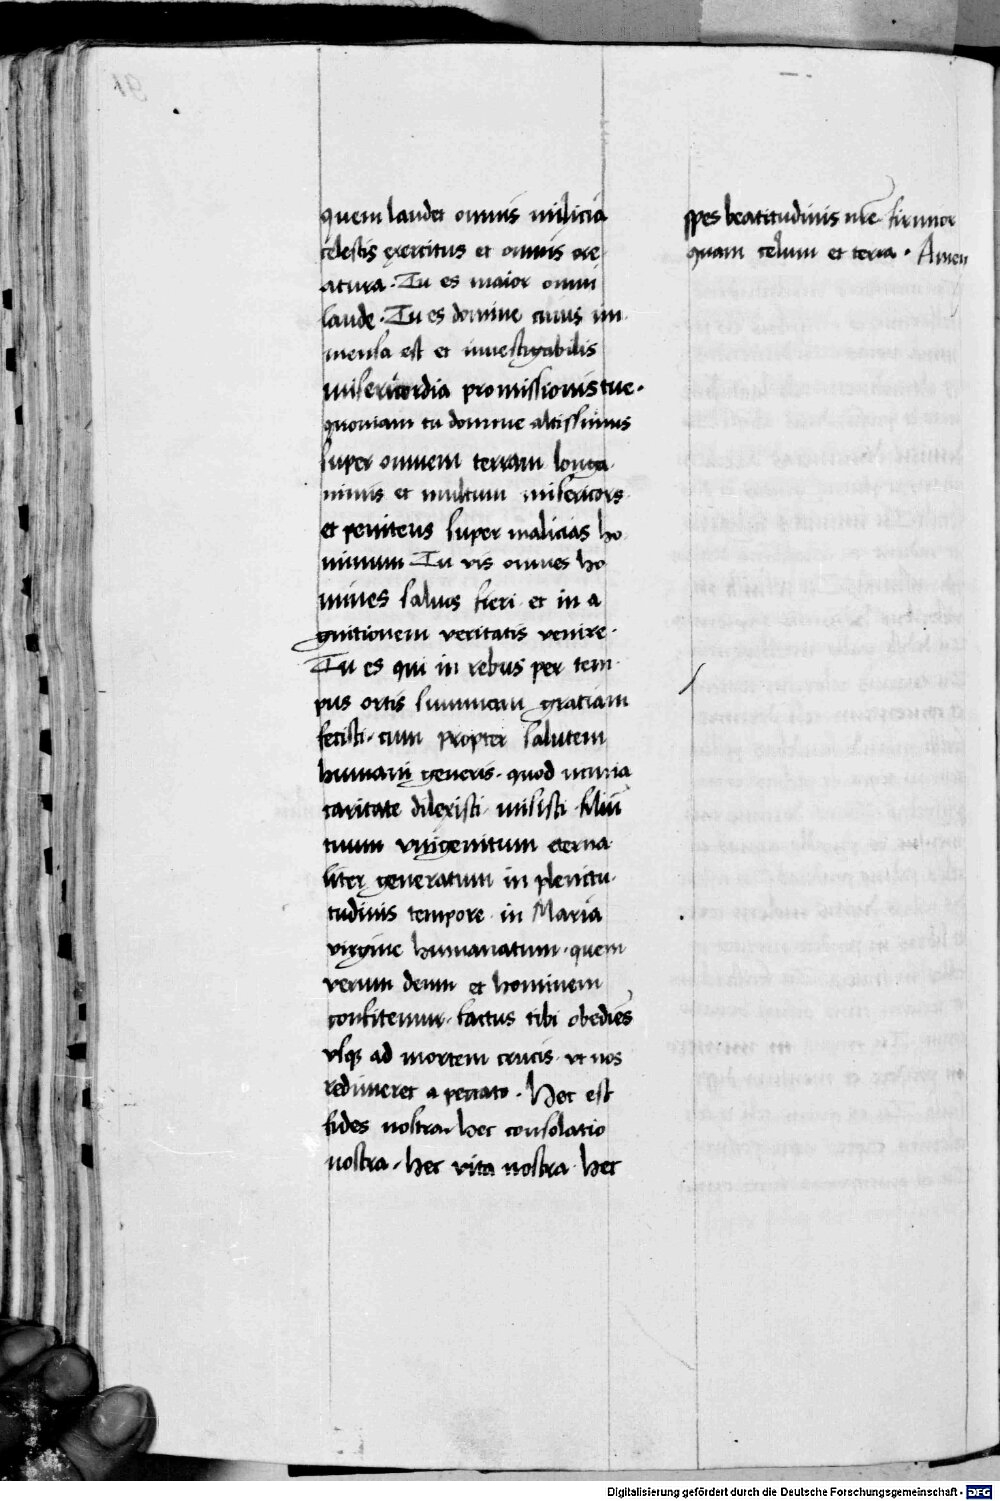 quem laudet omnis milicia
celestis exercitus et omnis cre
atura. Tu es maior omni
laude. Tu es domine cuius im
mensa est et investigabilis
misericordia promissionis tue.
quoniam tu domine altissimus
super omnem terram longa
nimis et multum misericors
et penitens super malicias ho
minum Tu vis omnes ho
mines salvos fieri et in a
gnitionem veritatis venire.
Tu es qui in rebus per tem
pus ortis summam gratiam
fecisti. cum propter salutem
humani generis. quod nimia
caritate dilexisti misisti filiū
tuum unigenitum eterna
liter generatum in plenitu
tudinis tempore in Maria
virgine humanatum. quem
verum deum et hominem
confitemur. factus tibi obediēs
usq̄ ad mortem crucis ut nos
redimeret a peccato. Hec est
fides nostra. hec consolatio
nostra. Hec vita nostra Hec
spes beatitudinis nr̄e firmior
quam celum et terra. Amen
91
Digitalisierung gefördert durch die Deutsche Forschungsgemeinschaft - DFG